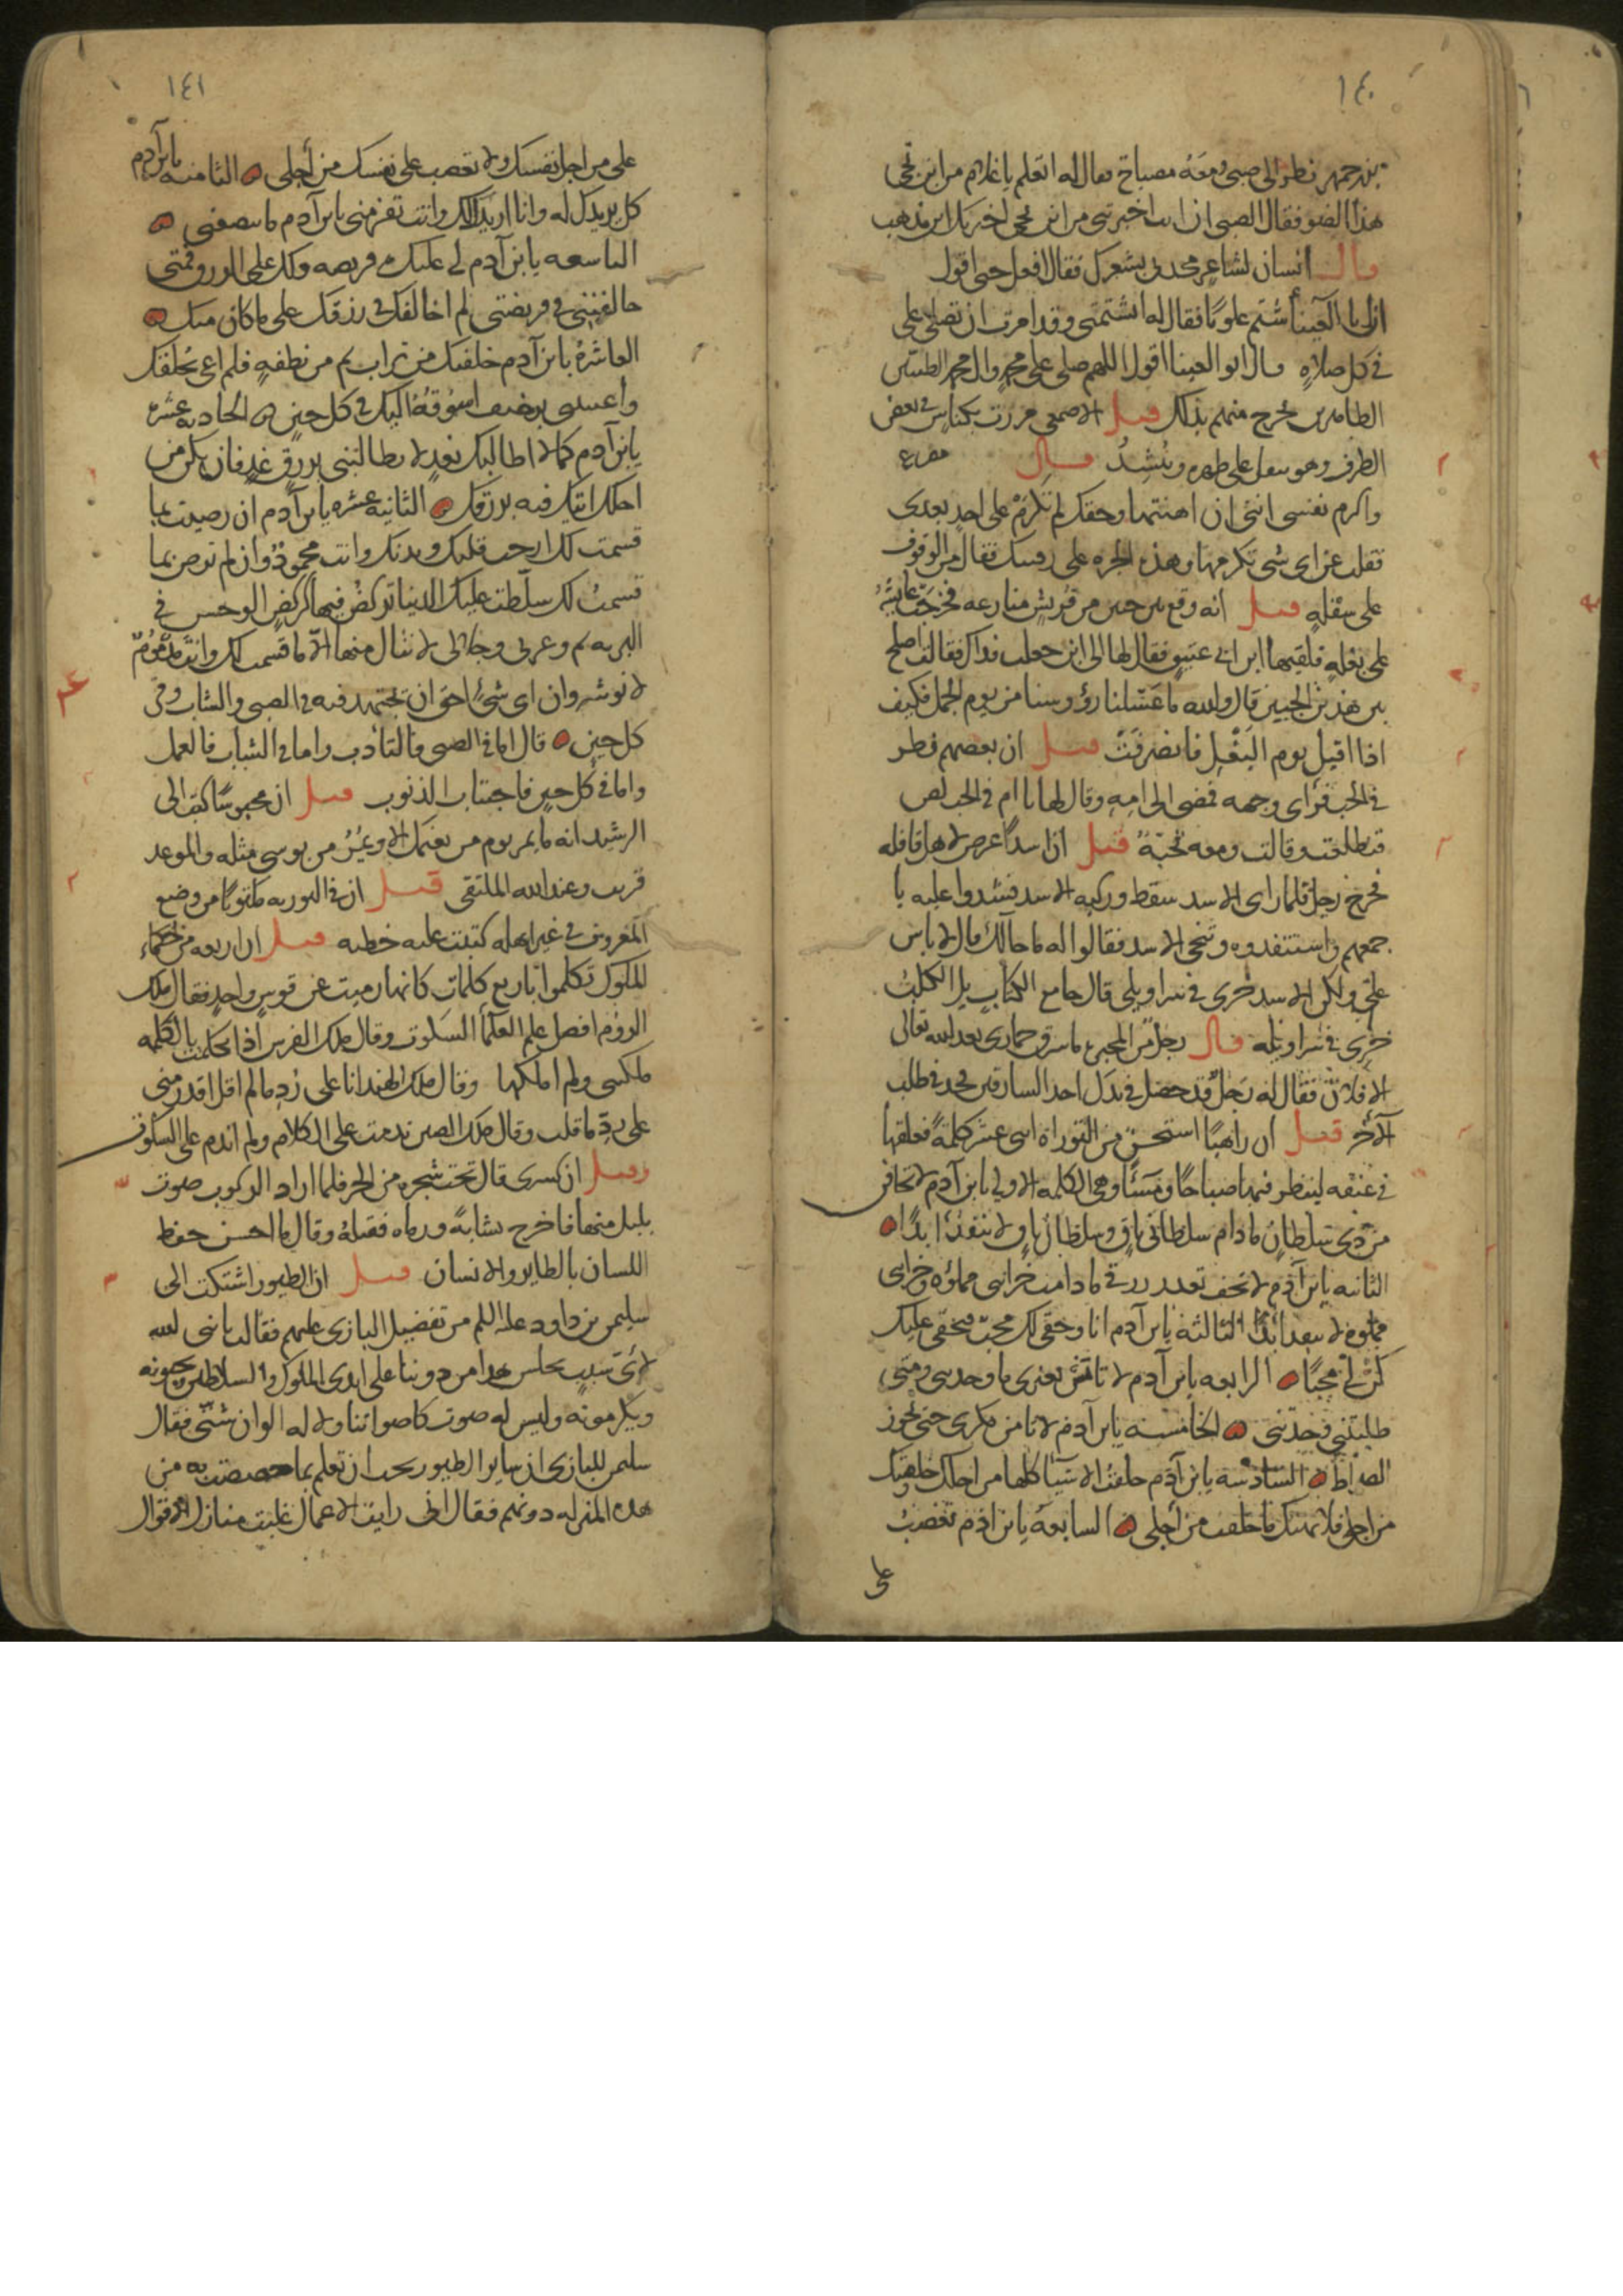 ١٤٠
بزرجمهر نظر الى صبى ومعه مصباح فقال له اتعلم يا غلام من اين تجى
هذا الضو فقال الصبى ان انت اخبرتنى من اين تجى اخبرتك اين تذهب
قال انسان لشاعر بشعرك فقال افعل حتى اقول
ان ابا العينا شتم علويا فقال له اتشتمنى وقد امرت ان تصلى على
فى كل صلاه قال ابو العينا اقول اللهم صلى على محمد وال محمد الطيبين
الطاهرين تخرج منهم بذلك قيل الاصمعى مررت بكناس فى بعض
الطرق وهو على ظهره وينشد قال مصرع
واكرم نفسى اننى ان اهنتها وحقك لم تكرم على احد بعدى
فقلت عن اى شى تكرمها وهذه الجره على فقال من الوقوف
على سفله قيل انه وقع بين حيين من قريش منازعه فخرجت عايشة
على بغله فلقيها ابن ابى عتيق فقال لها الى اين جعلت فداك فقالت اصلح
بين هذين الحيين قال والله ما غسلنا رؤوسنا من يوم الجمل فكيف
اذا اقيل يوم البغل فانصرفت قيل ان بعضهم نظر
فى الجب فراى وجهه فمضى الى امه وقال لها يا ام فى الجب لص
فتطلعت وقالت ومعه قحبة قيل ان اسدا عرض لاهل قافله
فخرج رجل فلما راى الاسد سقط وركبه الاسد فشدوا عليه با
جمعهم واستنقذوه وتنحى الاسد فقالوا له ما حالك قال لا باس
على ولكن الاسد خرى فى سراويلى قال جامع الكتاب بل الكلب
خرى فى سراويله قال رجل من ما سرق حمارى بعد الله تعالى
الا فلان فقال له رجل قد حصل فى يدك احد السارقين فجد فى طلب
الآخر قيل ان راهبا استحسن من التوراة اثنى عشر كلمة فعلقها
فى عنقه لينظر فيها صباحا ومساء وهى الكلمه الاولى يا ابن آدم لا تخاف
من ذى سلطان ما دام سلطانى باق وسلطانى باق لا ينفذ ابدا
الثانيه يا ابن آدم لا تخف رزق ما دامت خزائنى مملوءه وخزائنى
مملوءه لا تنفذ ابدا الثالثة يا ابن آدم انا وحقى لك محب فبحقى عليك
كن لى محبا الرابعه يا ابن آدم لا تانس بغيرى ما وجدتنى ومتى
طلبتنى وجدتنى الخامسه يا ابن آدم لا تامن مكرى حتى تجوز
الصراط السادسة يا ابن آدم خلقت الاشيا كلها من اجلك وخلقتك
من اجلى فلا تهتك ما خلقت من اجلى السابعة يا ابن ادم تغضب
على
١٤١
على من اجل نفسك ولا تغضب على نفسك من أجلى الثامنه يا ابن آدم
كل يريدك له وانا اريدك لك وانت تفر منى يا ابن آدم ما تنصفنى
التاسعه يا ابن آدم لى عليك فريضه ولك على الرزق فمتى
خالفتنى فى فريضتى لم اخالفك فى رزقك على ما كان منك
العاشرة يا ابن آدم خلقتك من تراب ثم من نطفه فلم اعى بخلقك
رغيف اسوقه اليك فى كل حين الحاديه عشرة
يا ابن آدم كما لا اطالبك لا تطالبنى برزق غد فان يكن من
اجلك اتيك فيه برزقك الثانيه عشره يا ابن آدم ان رضيت بما
قسمت لك ارحت قلبك وبدنك وانت محمود وان لم ترض بما
قسمت لك سلطت عليك الدنيا تركض فيها كركض الوحش فى
البريه ثم وعزتى وجلالى لا تنال منها الا ما قسمت لك وانت مذموم
لانوشروان اى شئ احق ان يجتهد فيه فى الصبى والشاب وفى
كل حين قال اما فى الصبى فالتأدب واما فى الشباب فالعمل
واما فى كل حين فاجتناب الذنوب قيل ان محبوسا كتب الى
الرشيد انه ما يمر يوم من نعمك الا ويمر من بوسى مثله والموعد
قريب وعند الله الملتقى قيل ان فى التوريه مكتوبا من وضع
المعروف فى غير اهله كتبت عليه خطيه قيل ان اربعه من حكماء
الملوك تكلموا باربع كلمات كانها رميت عن قوس واحد فقال ملك
الروم افضل علم العلما السكوت وقال ملك الفرس اذا تكلمت بالكلمه
ملكتنى ولم املكها وقال ملك الهند انا على رد ما لم اقل اقدر منى
على رد ما قلت وقال ملك الصين ندمت على الكلام ولم اندم على السكوت
وقيل ان كسرى قال تحت شجره من الحر فلما اراد الركوب صوت
بلبل منها فاخرج نشابة ورماه فقتله وقال ما احسن حفظ
اللسان بالطاير والانسان قيل ان الطيور اشتكت الى
سليمن بن داود عليه السلم من تفضيل البازى عليهم فقالت يا نبى الله
لاى سبب يجلس هذا من دوننا على ايدى الملوك والسلاطين يحبونه
ويكرمونه وليس له صوت كاصواتنا ولا له الوان شتى فقال
سليمن للبازى ان ساير الطيور يحب ان تعلم بما خصصت به من
هذه المنزله دونهم فقال انى رايت الاعمال غلبت منازل الاقوال